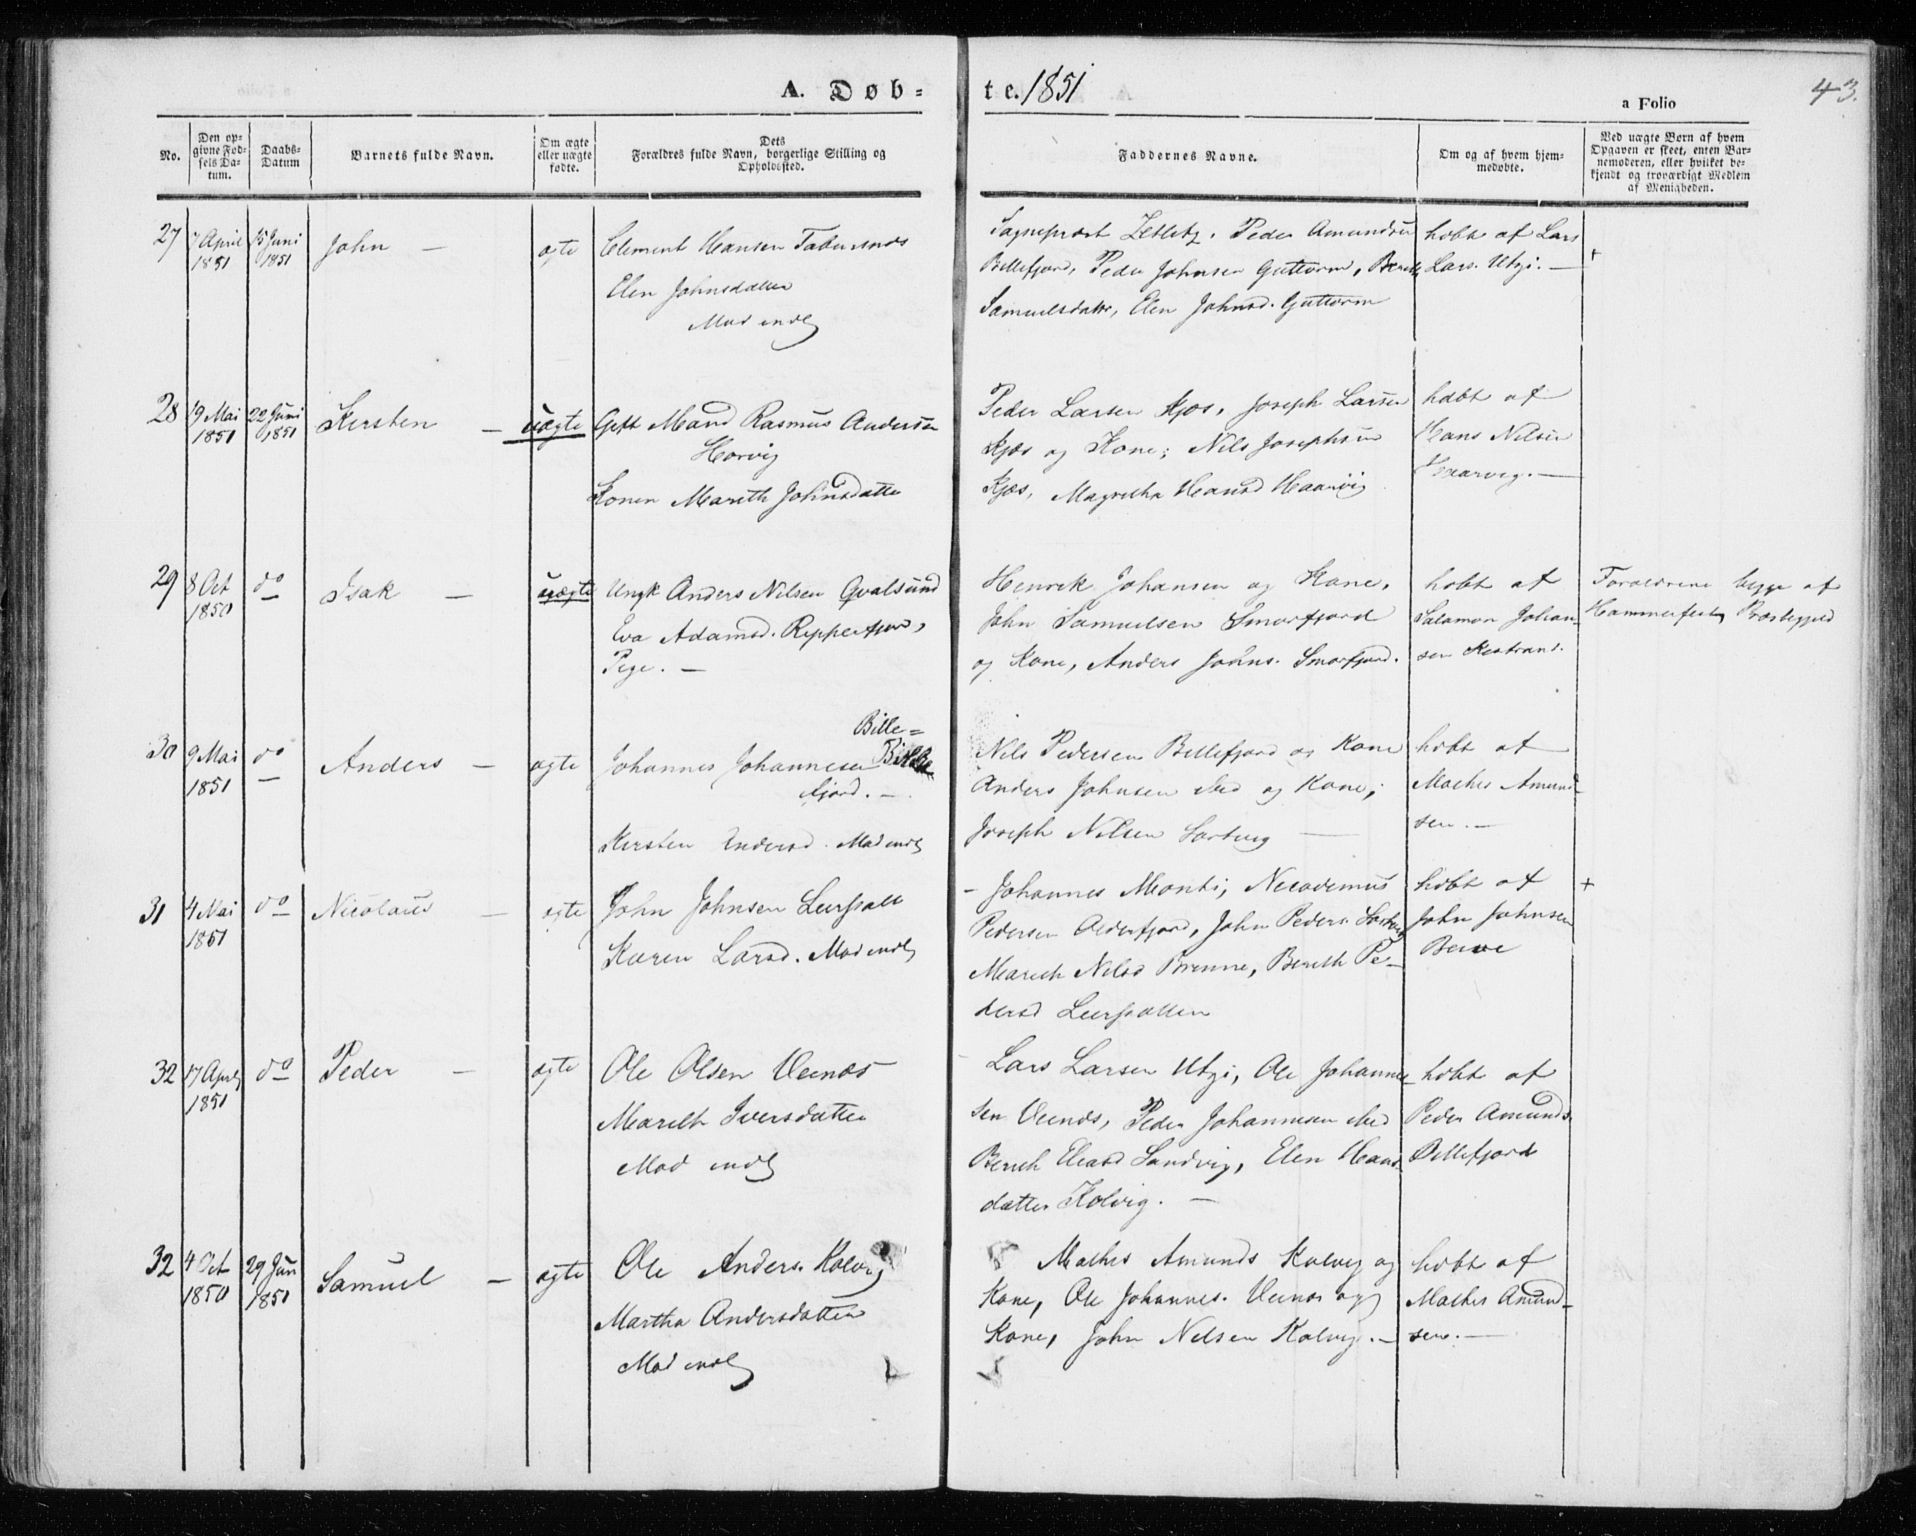 A. Døb-
te. 1851
a Folio
43.
No.
Den op-
givne Fød-
sels Da-
tum.
Daabs-
Datum
Barnets fulde Navn.
Om ægte
eller uægte
fødte.
Dets
Forældres fulde Navn, borgerlige Stilling og
Opholdssted.
Faddernes Navne.
Om og af hvem hjem-
medøbte.
Ved uægte Børn af hvem
Opgaven er skeet, enten Bar-
nemoderen, eller hvilket be-
kjendt og troværdigt Medlem
af Menigheden.
27
7 April
1851
15 Juni
1851
John —
ægte
Clement Hansen
Elen Johnsdatter
Sognepræst Zetlitz, Peder Amundsen
Billefjord, Peder Johnsen Guttorm, Bereth
Samuelsdatter, Elen Johnsd. Guttorm
hdbt af Lars
Lars. Utzi. —
+
28
19 Mai
1851
22 Juni
1851
Kersten —
uægte
Gift Mand Rasmus Andersen
Horvig
Konen Marith Johnsdatter
Peder Larsen Kjæs, Joseph Larsen
Kjæs og Kone, Nils Josephsen
Kjæs, Magretha Hansd Haarvig
hdbt af
Hans Nilsen
Haarvig. —
29
8 Oct
1850
do
Isak —
uægte
Ungk Anders Nilsen Qvalsund
Eva Adamsd. Repperfjord,
Pige. —
Henrik Johansen og Kone,
John Samuelsen Smørfjord
og Kone, Anders Johns. Smørfjord.
hdbt af
Salamon Johan-
sen
Forældrene begge af
Hammerfest Præstegjeld
30
9 Mai
1851
do
Anders —
ægte
Johannes Johannesen
Bille-
fjord. —
Kersten Andersd.
Nils Pedersen Billefjord og Kone
Anders Johnsen og Kone,
Joseph Nilsen
hdbt af
Mathis Amund-
sen. —
31
4 Mai
1851
do
Nicolaus —
ægte
John Johnsen
Karen Larsd.
- Johannes Nicodemus
Pedersen Olderfjord, John Peders.
Marith Nilsd Brenne, Bereth Pe-
dersd
hdbt af
John Johnsen
+
32
17 April
1851
do
Peder —
ægte
Ole Olsen Veenæs
Marith Iversdatter
Lars Larsen Utzi, Ole Johanne-
sen Veenæs, Peder Johannesen
Bereth Eliasd Sandvig, Elen Hans-
datter Kolvig. —
hdbt af
Peder Amunds.
Billefjord
32
4 Oct
1850
29 Jun
1851
Samuel —
ægte
Ole Anders. Kolvig
Martha Andersdatter
Mathis Amunds Kolvig og
Kone, Ole Johannes. Veenæs og
Kone, John Nilsen Kolvig. —
hdbt af
Mathis Amund-
sen. —